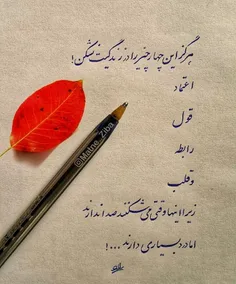 هرگز این چهار چیز را در زندگیت نشکن!
اعتماد
قول
رابطه
و قلب
زیرا اینها وقتی می شکنند صدا ندارند
اما درد بسیاری دارند ...!
@Matne_Ziba